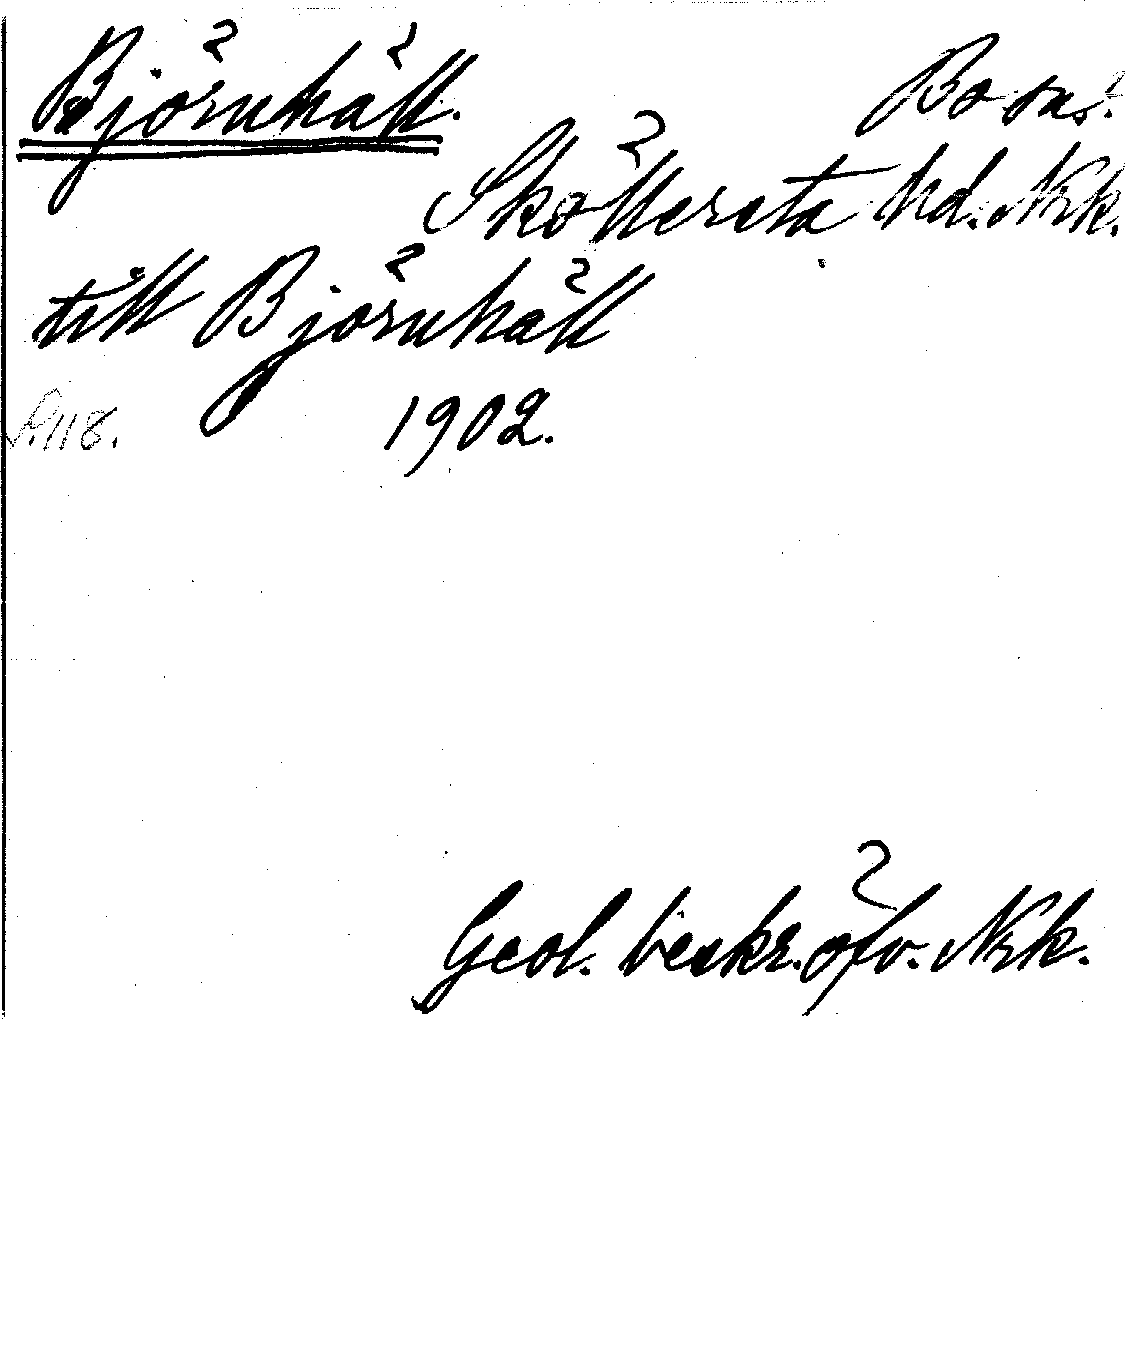 Björnhäll. Bo sn.
Sköllersta hd. Nrk.
till Björnhäll
S. 118. 1902.
Geol. beskr. öfv. Nrk.